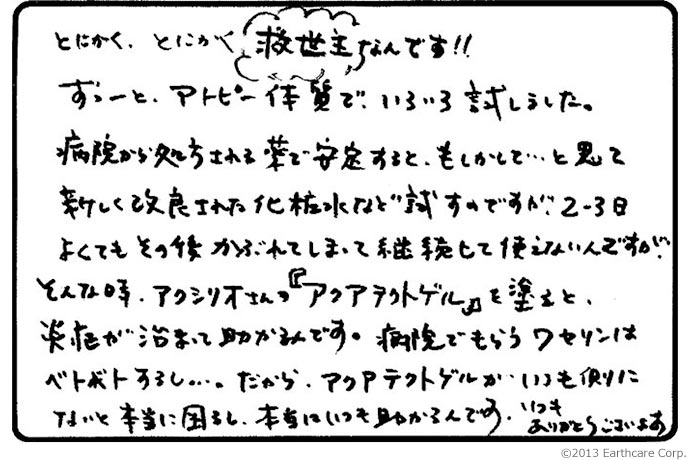 とにかく、とにかく救世主なんです!!
ずっーと、アトピー体質で、いろいろ試しました。
病院から処方される薬で安定すると、もしかして…と思って
新しく改良された化粧水など試すのですが、2-3日
よくてもその後かぶれてしまって継続して使えないんですが、
そんな時、アクシリオさんの『アクアテクトゲル』を塗ると、
炎症が治まって助かるんです。病院でもらうワセリンは
ベトベトするし…。だから、アクアテクトゲルが、いつも側に
ないと本当に困るし、本当にいつも助かるんです。いつも
ありがとうございます
©2013 Earthcare Corp.